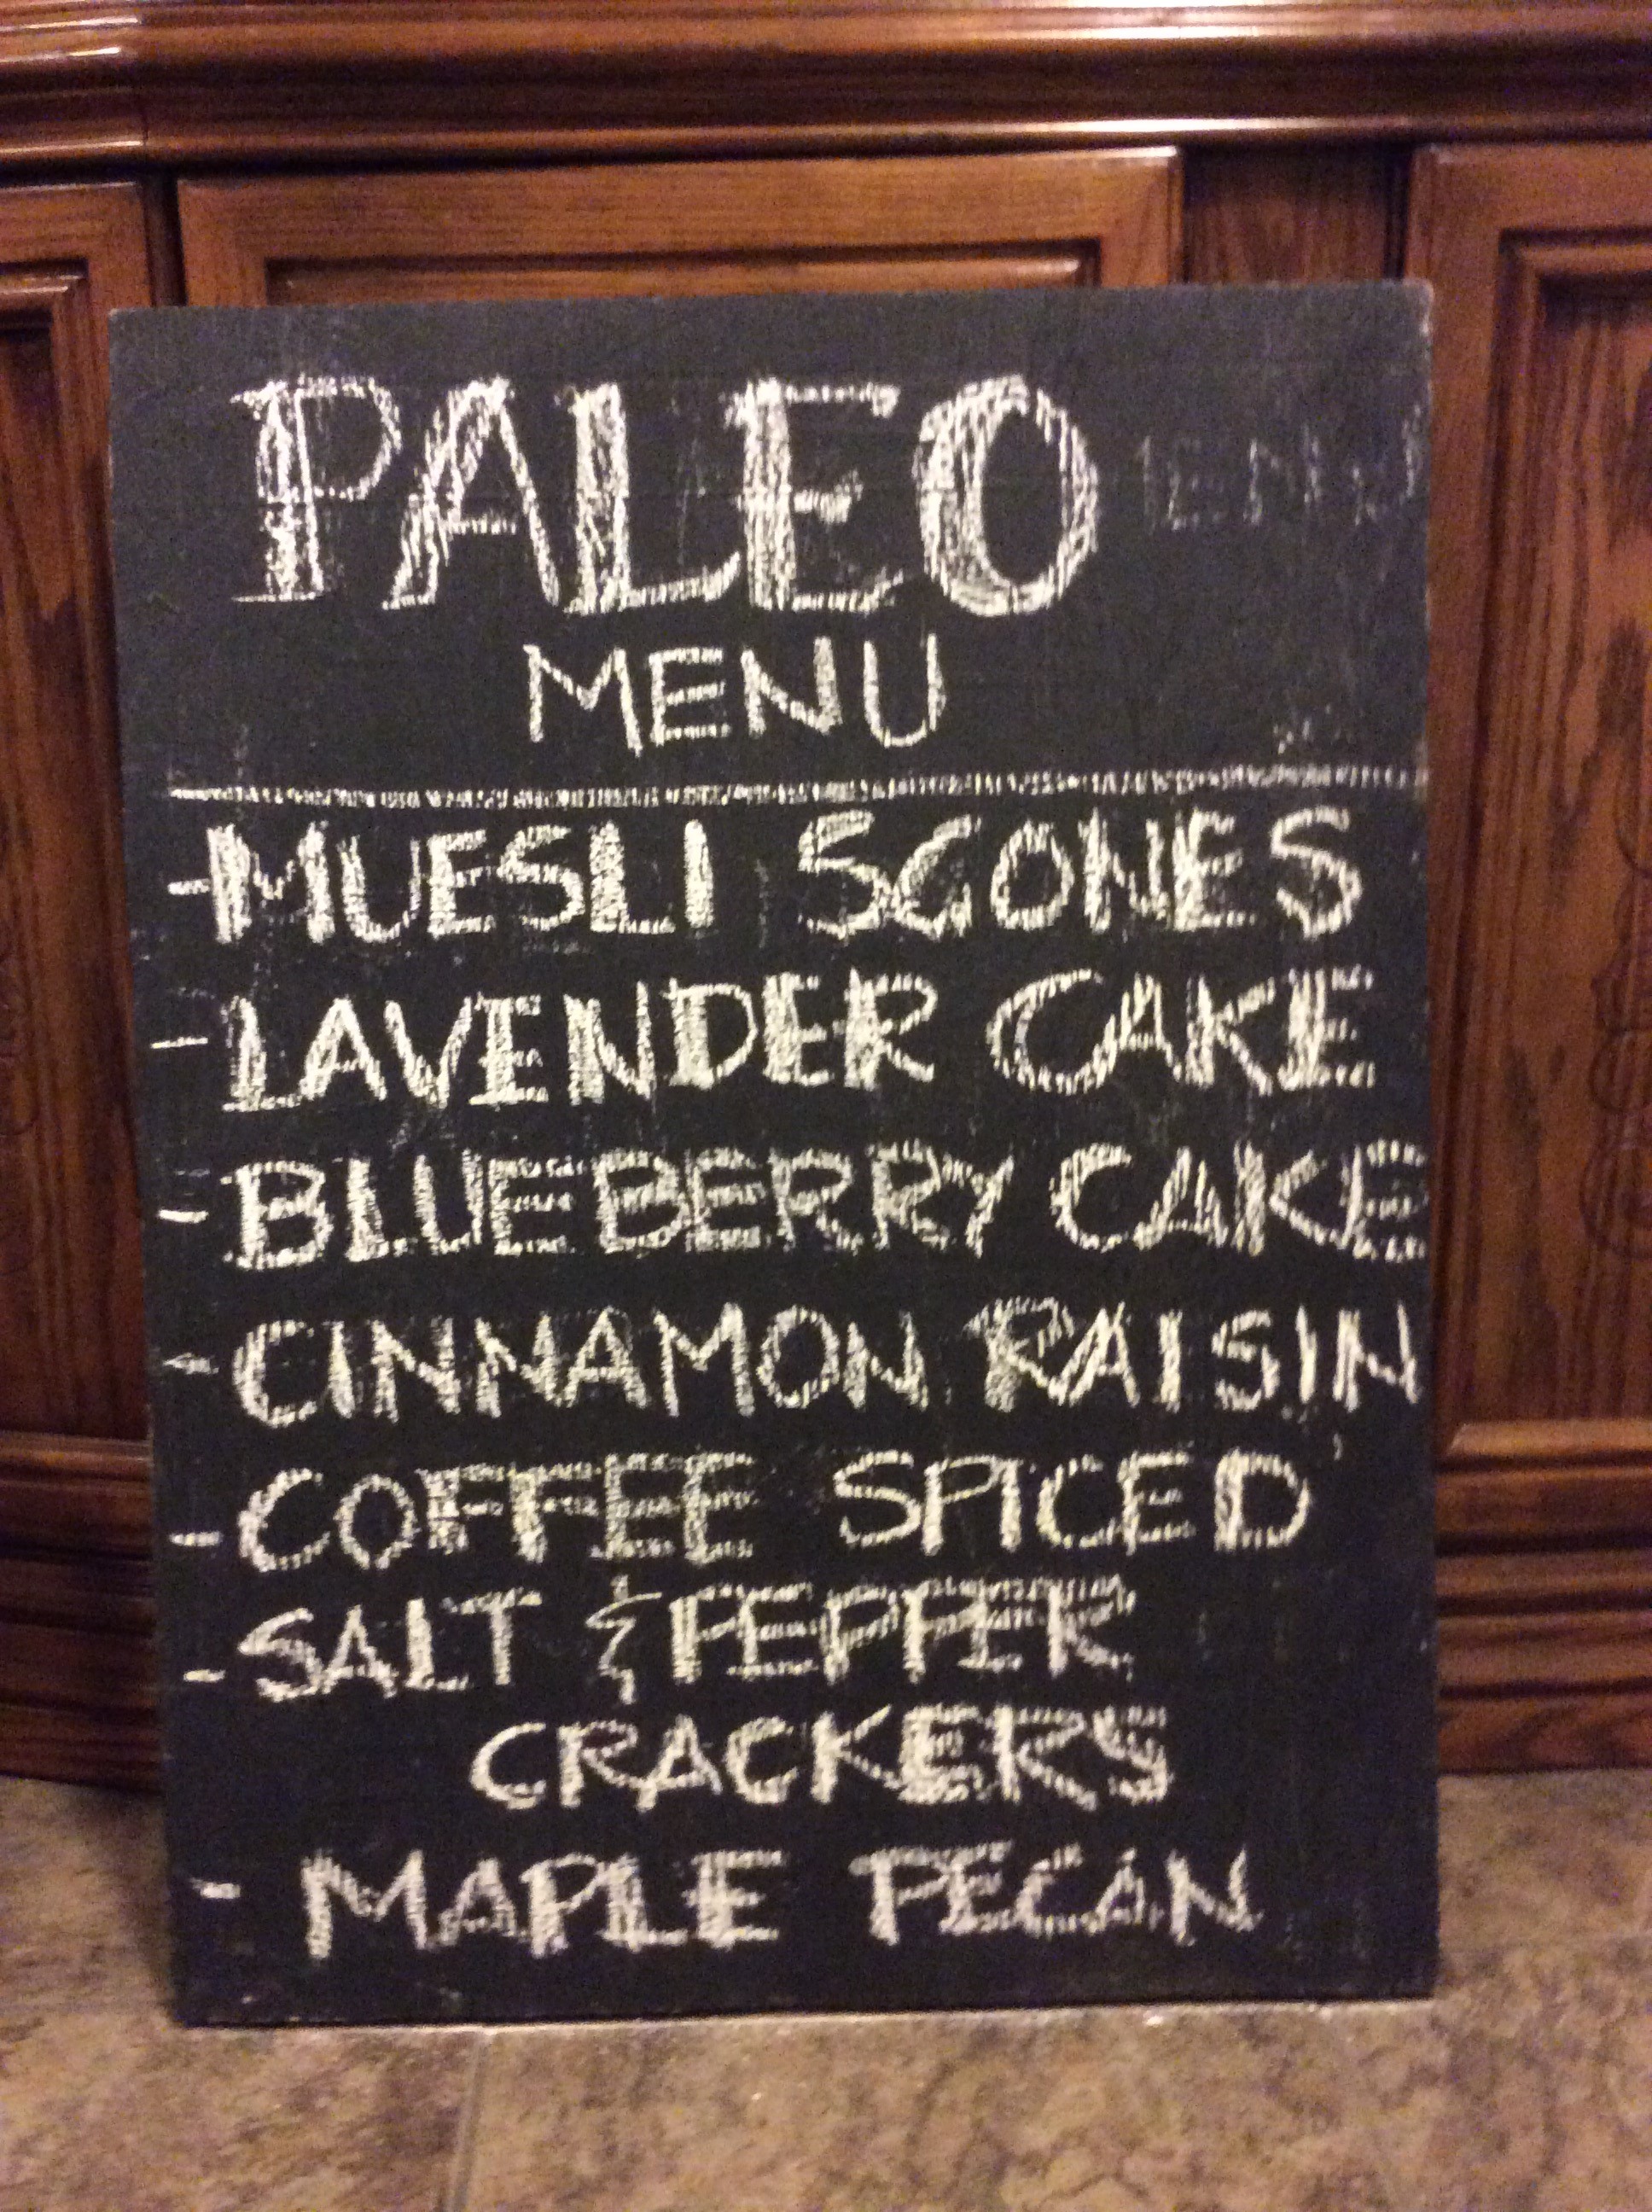 PALEO
MENU
-MUESLI SCONES
- LAVENDER CAKE
- BLUEBERRY CAKE
- CINNAMON RAISIN
- COFFEE SPICED
- SALT & PEPPER
CRACKERS
- MAPLE PECAN